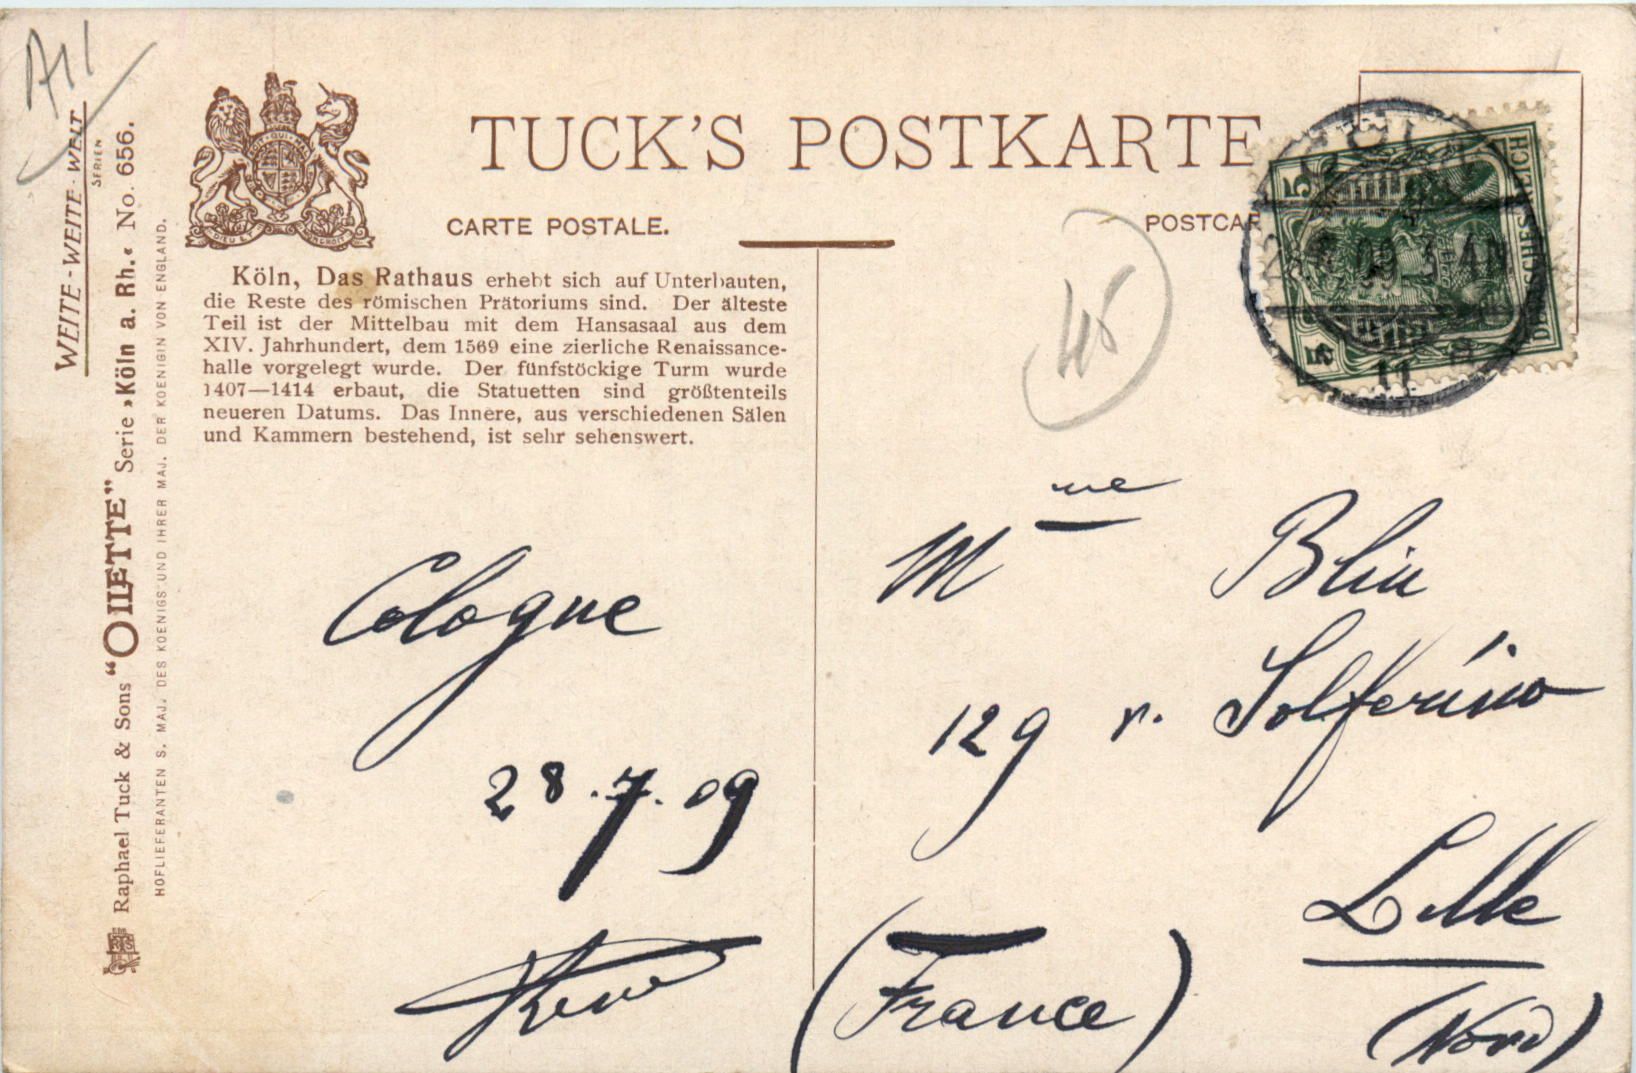 WEITE-WEITE-WELT
SERIEN
Raphael Tuck & Sons “OILETTE” Serie »Köln a. Rh.« No. 656.
HOFLIEFERANTEN S. MAJ. DES KOENIGS UND IHRER MAJ. DER KOENIGIN VON ENGLAND.
TUCK'S POSTKARTE
CARTE POSTALE.
POSTCAR
Köln, Das Rathaus erhebt sich auf Unterbauten,
die Reste des römischen Prätoriums sind. Der älteste
Teil ist der Mittelbau mit dem Hansasaal aus dem
XIV. Jahrhundert, dem 1569 eine zierliche Renaissance-
halle vorgelegt wurde. Der fünfstöckige Turm wurde
1407—1414 erbaut, die Statuetten sind größtenteils
neueren Datums. Das Innere, aus verschiedenen Sälen
und Kammern bestehend, ist sehr sehenswert.
DIEU ET MON DROIT
5
5
DEUTSCHES REICH
11
45
Cologne
28.7.09
Mme Blin
129 r. Solferino
Lille
(France)
(Nord)